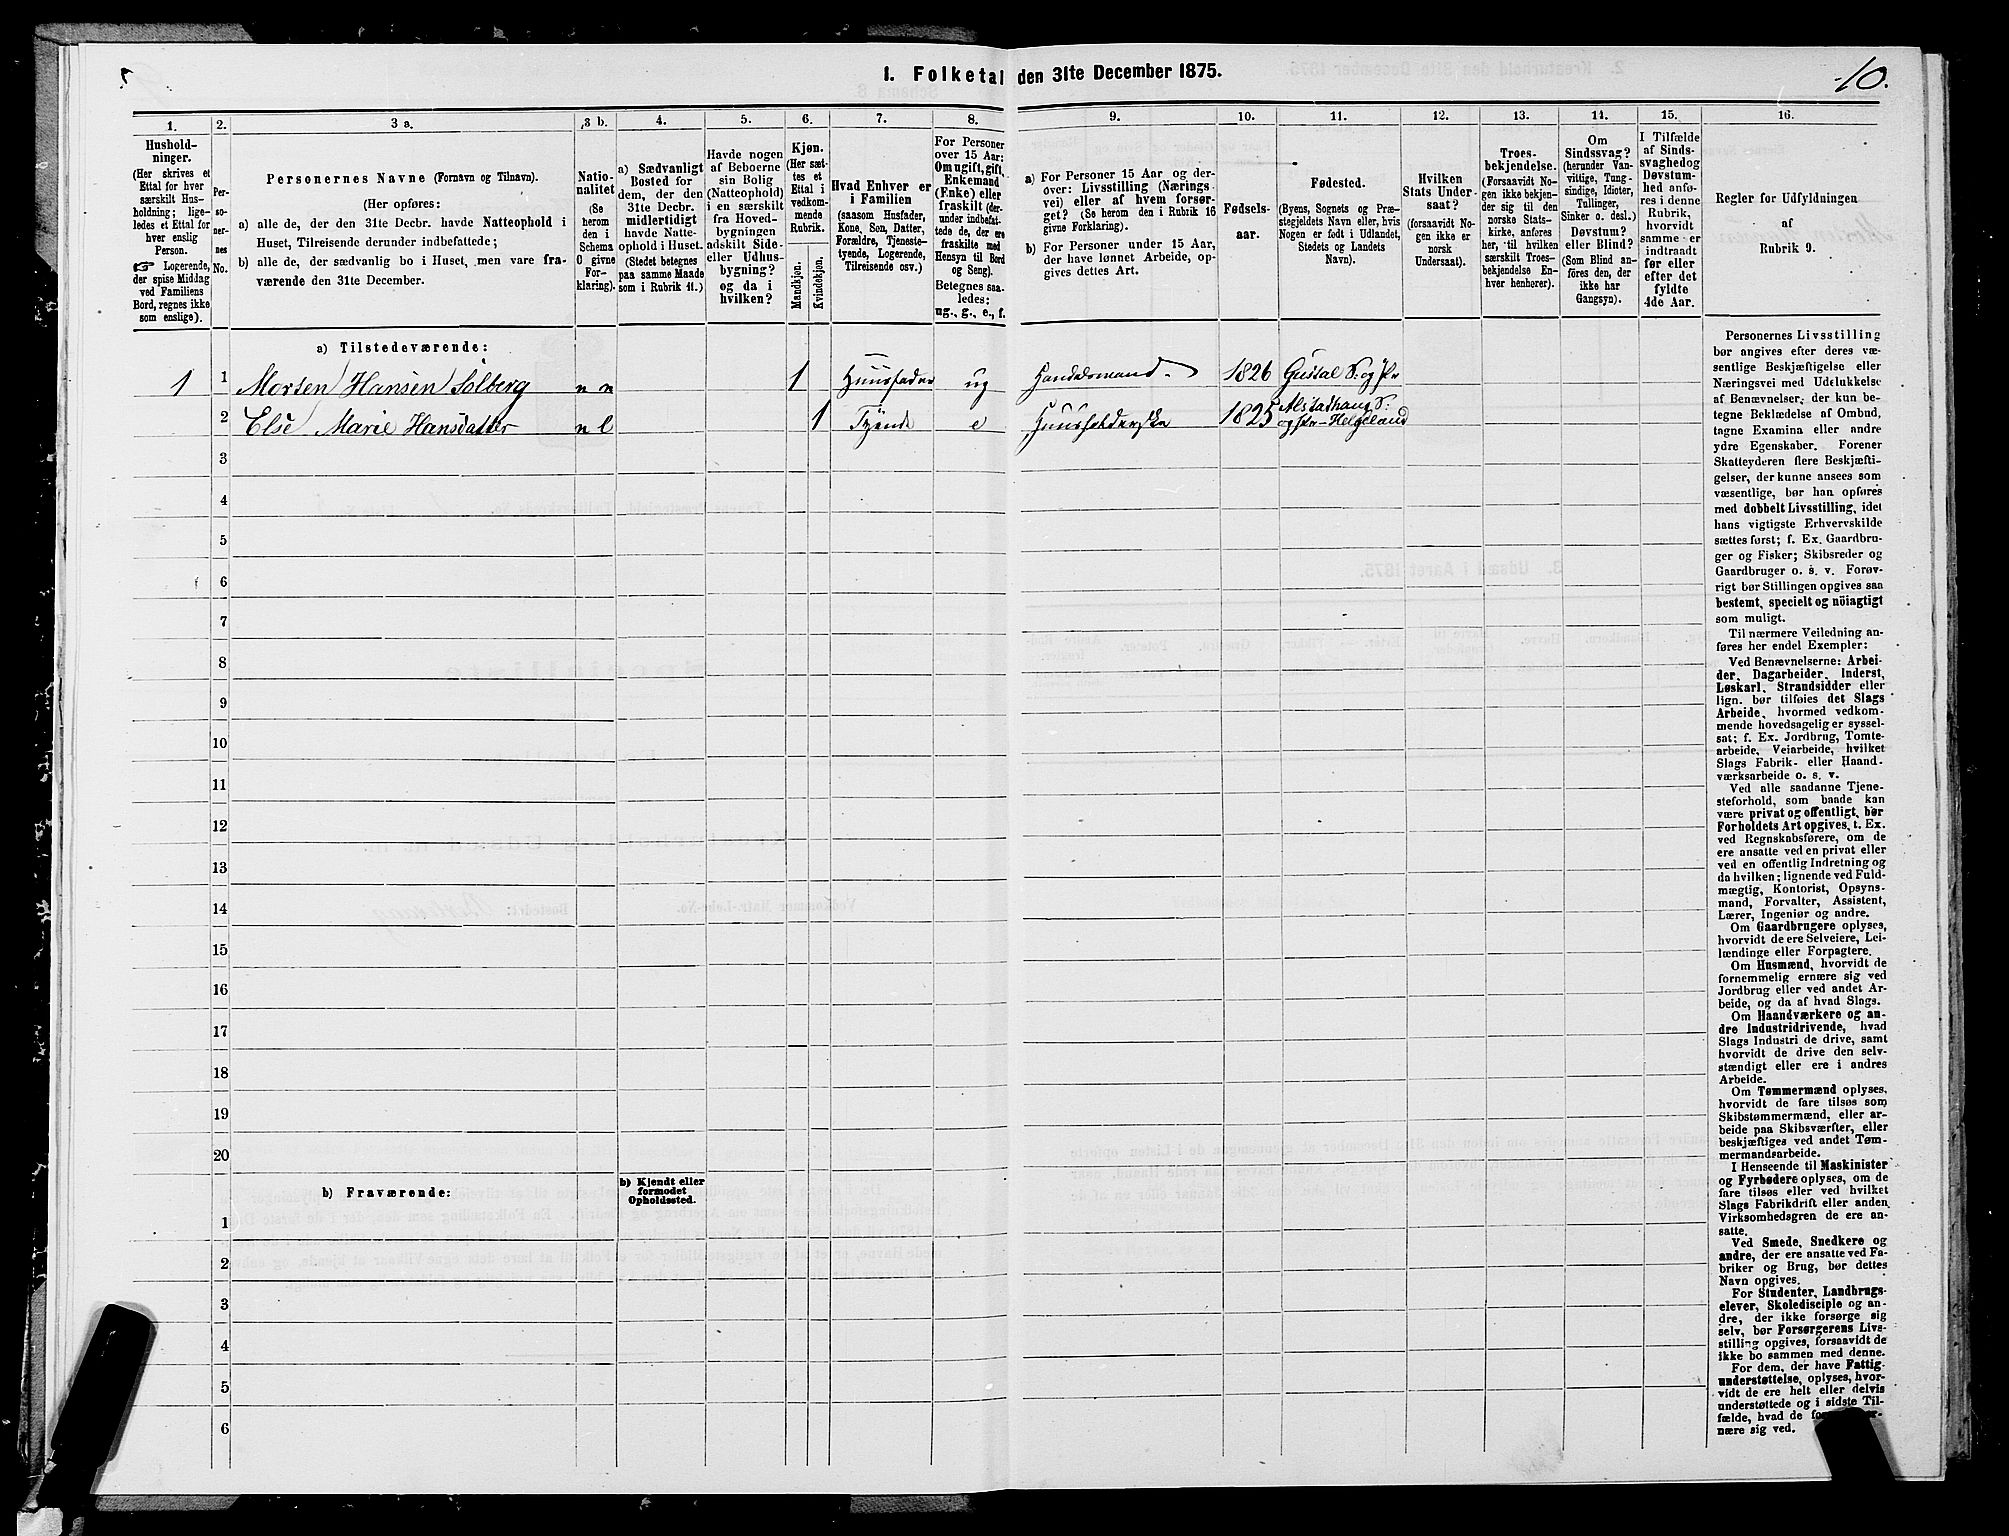 1. Folketal den 31te December 1875.
10.
1.
Hushold-
ninger.
(Her skrives et
Ettal for hver
særskilt Hus-
holdning; lige-
ledes et Ettal for
hver enslig
Person.
☞ Logerende,
der spise Middag
ved Familiens
Bord, regnes ikke
som enslige).
2.
Per-
so-
ner-
nes
No.
3 a.
Personernes Navne (Fornavn og Tilnavn).
(Her opføres:
a) alle de, der den 31te Decbr. havde Natteophold i
Huset, Tilreisende derunder indbefattede;
b) alle de, der sædvanlig bo i Huset, men vare fra-
værende den 31te December.
3 b.
Natio-
nalitet
(Se
herom
den i
Schema
0 givne
For-
klaring).
4.
a) Sædvanligt
Bosted for
dem, der den
31te Decbr.
midlertidigt
havde Natte-
ophold i Huset.
(Stedet betegnes
paa samme Maade
som i Rubrik 11.)
5.
Havde nogen
af Beboerne
sin Bolig
(Natteophold)
i en særskilt
fra Hoved-
bygningen
adskilt Side-
eller Udhus-
bygning?
og da i
hvilken?
6.
Kjøn.
(Her sæt-
tes et
Ettal i
vedkom-
mende
Rubrik.
Mandkjøn.
Kvindekjøn.
7.
Hvad Enhver er
i Familien
(saasom Husfader,
Kone, Søn, Datter,
Forældre, Tjeneste-
tyende, Logerende,
Tilreisende osv.)
8.
For Personer
over 15 Aar:
Om ugift, gift,
Enkemand
(Enke) eller
fraskilt (der-
under indbefat-
tede de, der ere
fraskilte med
Hensyn til Bord
og Seng).
Betegnes saa-
ledes:
ug., g., e., f.
9.
a) For Personer 15 Aar og der-
over: Livsstilling (Nærings-
vei) eller af hvem forsør-
get? (Se herom den i Rubrik 16
givne Forklaring).
b) For Personer under 15 Aar,
der have lønnet Arbeide, op-
gives dettes Art.
10.
Fødsels-
aar.
11.
Fødested.
(Byens, Sognets og Præ-
stegjeldets Navn eller, hvis
Nogen er født i Udlandet,
Stedets og Landets
Navn).
12.
Hvilken
Stats Under-
saat?
(forsaavidt No-
gen ikke er
norsk
Undersaat).
13.
Troes-
bekjendelse.
(Forsaavidt No-
gen ikke bekjen-
der sig til den
norske Stats-
kirke, anføres
her, til hvilken
særskilt Troes-
bekjendelse En-
hver henhører).
14.
Om
Sindssvag?
(herunder Van-
vittige, Tung-
sindige, Idioter,
Tullinger,
Sinker o. desl.)
Døvstum?
eller Blind?
(Som Blind an-
føres den, der
ikke har
Gangsyn).
15.
I Tilfælde
af Sinds-
svaghed og
Døvstum-
hed anfø-
res i denne
Rubrik,
hvorvidt
samme er
indtraadt
før eller
efter det
fyldte
4de Aar.
16.
Regler for Udfyldningen
af
Rubrik 9.
a) Tilstedeværende:
1 1 Morten Hansen Solberg n n 1 Huusfader ug Handelsmand 1826 S: og Pr
2 Else Marie Hansdatter n l 1 Tyende e Huusholderske 1825 Alstadhaug S:
og Pr - Helgeland
3
4
5
6
7
8
9
10
11
12
13
14
15
16
17
18
19
20
b) Fraværende:
b) Kjendt eller
formodet
Opholdssted.
1
2
3
4
5
6
Personernes Livsstilling
bør angives efter deres væ-
sentlige Beskjæftigelse eller
Næringsvei med Udelukkelse
af Benævnelser, der kun be-
tegne Beklædelse af Ombud,
tagne Examina eller andre
ydre Egenskaber. Forener
Skatteyderen flere Beskjæfti-
gelser, der kunne ansees som
væsentlige, bør han opføres
med dobbelt Livsstilling, idet
hans vigtigste Erhvervskilde
sættes først; f. Ex. Gaardbru-
ger og Fisker; Skibsreder og
Gaardbruger o. s. v. Forøv-
rigt bør Stillingen opgives saa
bestemt, specielt og nöiagtigt
som muligt.
Til nærmere Veiledning an-
føres her endel Exempler:
Ved Benævnelserne: Arbei-
der, Dagarbeider, Inderst,
Løskarl, Strandsidder eller
lign. bør tilføies det Slags
Arbeide, hvormed vedkom-
mende hovedsagelig er syssel-
sat; f. Ex. Jordbrug, Tomte-
arbeide, Veiarbeide, hvilket
Slags Fabrik- eller Haand-
værksarbeide o. s. v.
Ved alle saadanne Tjene-
steforhold, som baade kan
være privat og offentligt, bør
Forholdets Art opgives, t. Ex.
ved Regnskabsførere, om de
ere ansatte ved en privat eller
ved en offentlig Indretning og
da hvilken; lignende ved Fuld-
mægtig, Kontorist, Opsyns-
mand, Forvalter, Assistent,
Lærer, Ingeniør og andre.
Om Gaardbrugere oplyses,
hvorvidt de ere Selveiere, Lei-
lændinge eller Forpagtere.
Om Husmænd, hvorvidt de
fornemmelig ernære sig ved
Jordbrug eller ved andet Ar-
beide, og da af hvad Slags.
Om Haandværkere og an-
dre Industridrivende, hvad
Slags Industri de drive, samt
hvorvidt de drive den selv-
stændigt eller ere i andres
Arbeide.
Om Tømmermænd oplyses,
hvorvidt de fare tilsøs som
Skibstømmermænd, eller ar-
beide paa Skibsværfter, eller
beskjæftiges ved andet Tøm-
mermandsarbeide.
I Henseende til Maskinister
og Fyrbødere oplyses, om de
fare tilsøs eller ved hvilket
Slags Fabrikdrift eller anden
Virksomhedsgren de ere an-
satte.
Ved Smede, Snedkere og
andre, der ere ansatte ved Fa-
briker og Brug, bør dettes
Navn opgives.
For Studenter, Landbrugs-
elever, Skoledisciple og an-
dre, der ikke forsørge sig
selv, bør Forsørgerens Livs-
stilling opgives, forsaavidt de
ikke bo sammen med denne.
For dem, der have Fattig-
understøttelse, oplyses, hvor-
vidt de ere helt eller delvis
understøttede og i sidste Til-
fælde, hvad de
nære sig ved.